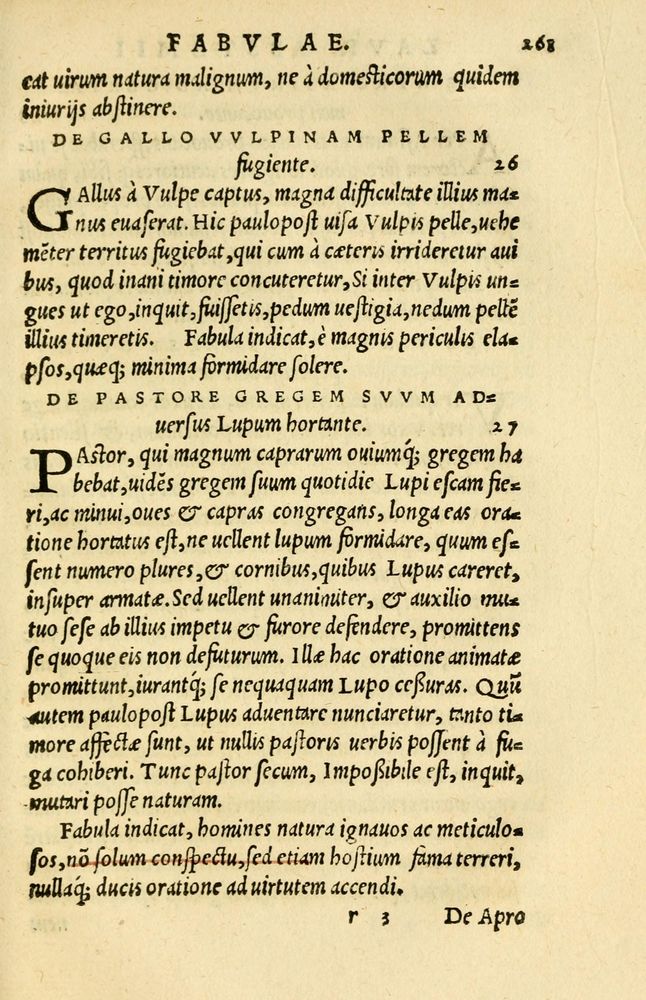 FABVLAE. 268
cat uirum natura malignum, ne à domesticorum quidem
iniurijs abstinere.
DE GALLO VVLPINAM PELLEM
fugiente. 26
GAllus à Vulpe captus, magna difficultate illius ma-
nus euaserat. Hic paulopost uisa Vulpis pelle, uehe
mẽter territus fugiebat, qui cum à cæteris irrideretur aui
bus, quod inani timore concuteretur, Si inter Vulpis un-
gues ut ego, inquit, fuissetis, pedum uestigia, nedum pellẽ
illius timeretis. Fabula indicat, è magnis periculis ela-
psos, quæq; minima formidare solere.
DE PASTORE GREGEM SVVM AD-
uersus Lupum hortante. 27
PAstor, qui magnum caprarum ouiumq́; gregem ha
bebat, uidẽs gregem suum quotidie Lupi escam fie-
ri, ac minui, oues & capras congregans, longa eas ora-
tione hortatus est, ne uellent lupum formidare, quum es-
sent numero plures, & cornibus, quibus Lupus careret,
insuper armatæ. Sed uellent unanimiter, & auxilio mu-
tuo sese ab illius impetu & furore defendere, promittens
se quoque eis non defuturum. Illæ hac oratione animatæ
promittunt, iurantq́; se nequaquam Lupo ceßuras. Quũ
autem paulopost Lupus aduentare nunciaretur, tanto ti-
more affectæ sunt, ut nullis pastoris uerbis possent à fu-
ga cohiberi. Tunc pastor secum, Impoßibile est, inquit,
mutari posse naturam.
Fabula indicat, homines natura ignauos ac meticulo-
sos, nõ solum conspectu, sed etiam hostium fama terreri,
nullaq́; ducis oratione ad uirtutem accendi.
r 3 De Apro